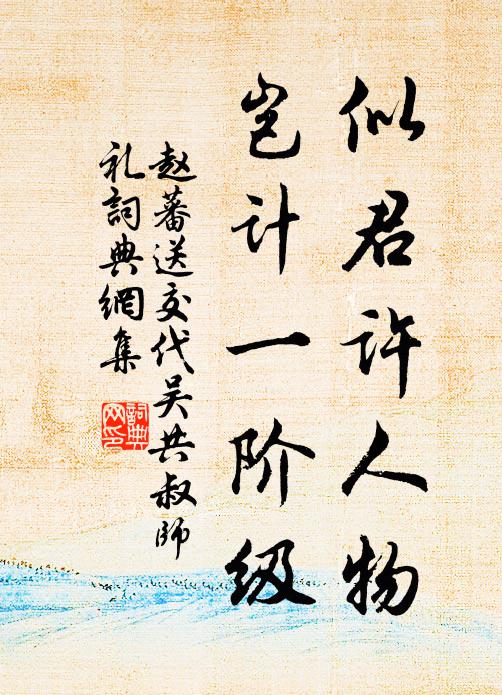 似君许人物
岂计一阶级
赵蕃送交代吴共叔師
礼詞典網集
詞典
网印